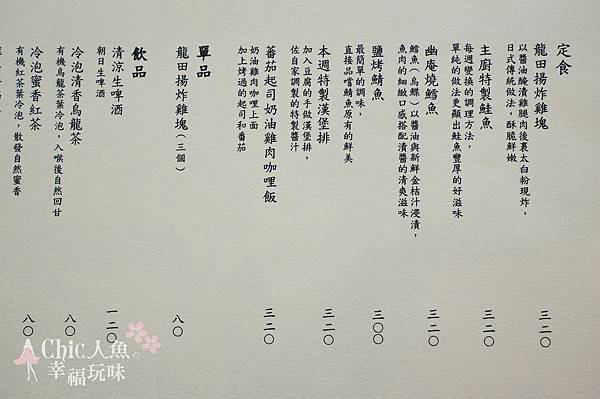 定食
龍田揚炸雞塊 三二〇
以醬油醃漬雞腿肉後裹太白粉現炸，
日式傳統做法，酥脆鮮嫩
主廚特製鮭魚 三二〇
每週變換的調理方法，
單純的做法更顯出鮭魚豐厚的好滋味
幽庵燒鱈魚 三二〇
鱈魚（烏鰈）以醬油與新鮮金桔汁浸漬，
魚肉的細緻口感搭配漬醬的清爽滋味
鹽烤鯖魚 三〇〇
最簡單的調味，
直接品嚐鯖魚原有的鮮美
本週特製漢堡排 三二〇
加入豆腐的手做漢堡排，
佐自家調製的特製醬汁
蕃茄起司奶油雞肉咖哩飯 三二〇
奶油雞肉咖哩上面
加上烤過的起司和番茄
單品
龍田揚炸雞塊（三個） 八〇
飲品
清涼生啤酒 一二〇
朝日生啤酒
冷泡清香烏龍茶 八〇
有機烏龍茶葉冷泡，入喉後自然回甘
冷泡蜜香紅茶 八〇
有機紅茶葉冷泡，散發自然蜜香
Chic人魚の
幸福玩味